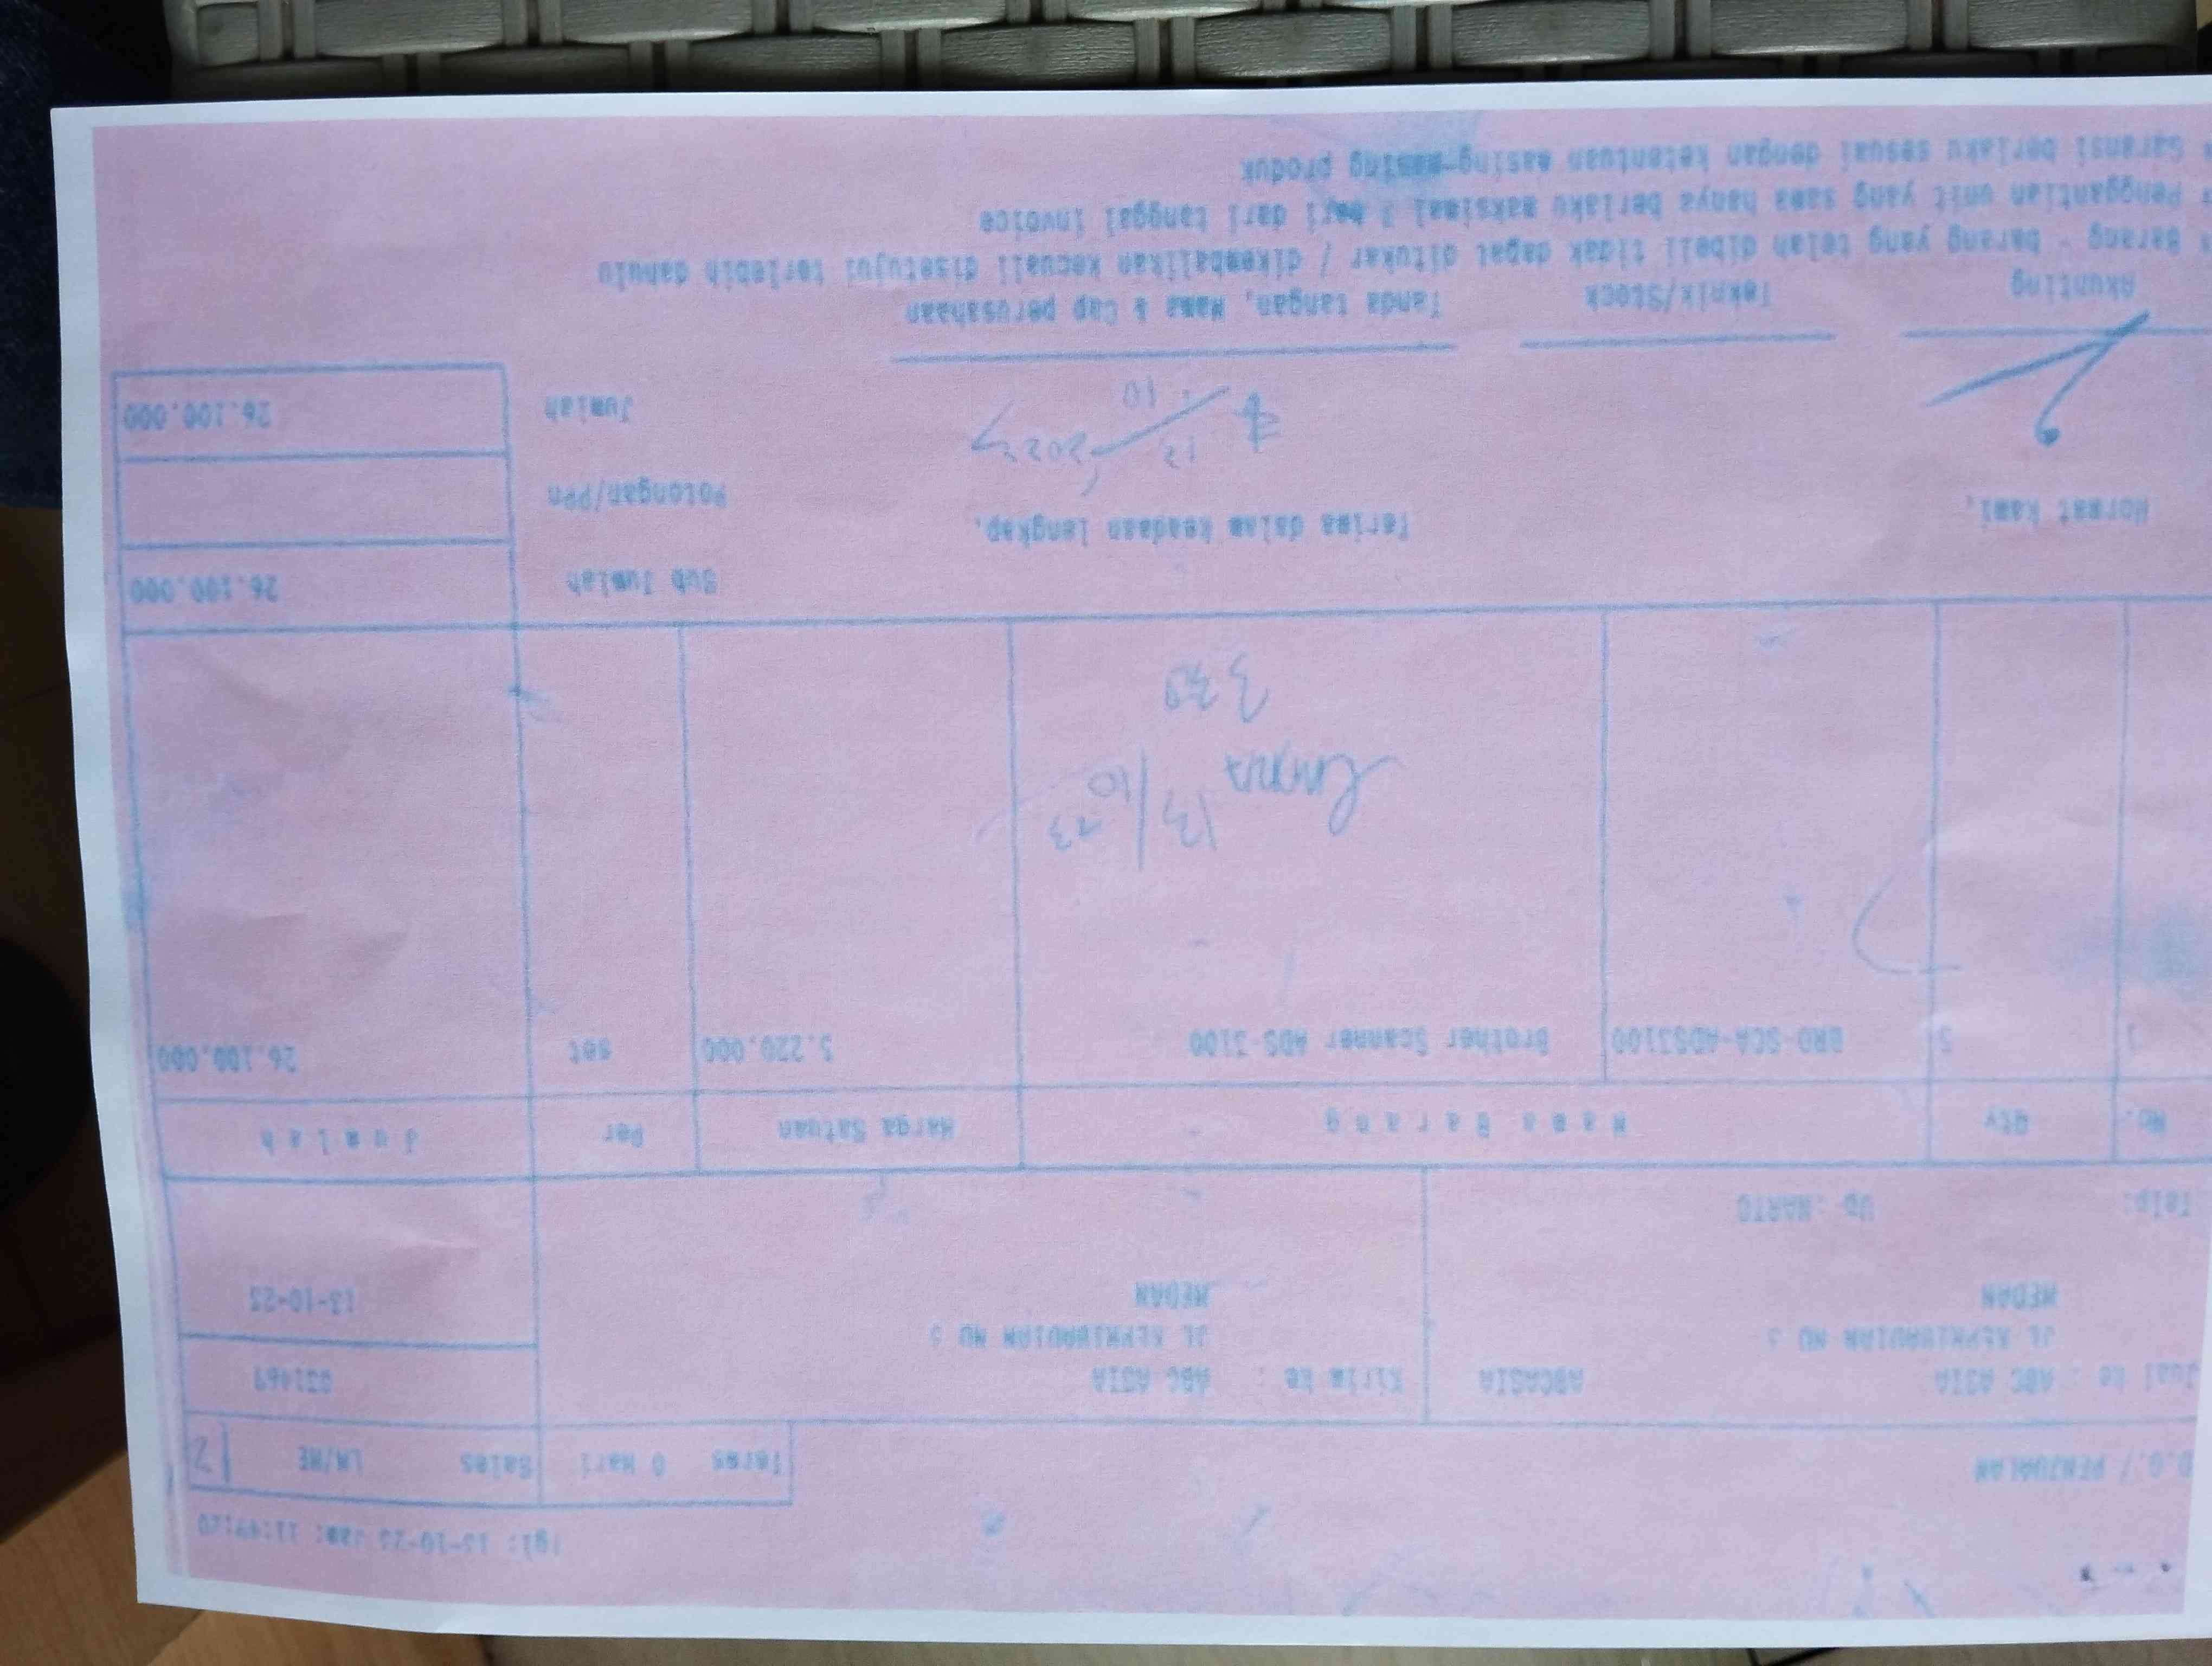 Tgl: 13-10-23 Jam: 11:49:20
D.O./ PENJUALAN
Terms 0 Hari Sales LM/ME 2
Jual ke : ABC ASIA ABCASIA Kirim ke : ABC ASIA 031469
JL KEPRIBADIAN NO 5 JL KEPRIBADIAN NO 5
MEDAN MEDAN 13-10-23
Telp: Up : HARTO
No. Qty Nama Barang Harga Satuan Per Jumlah
1 5 BRO-SCA-ADS3100 Brother Scanner ADS-3100 5.220.000 set 26.100.000
13/10 23
Sub Jumlah 26.100.000
Hormat kami, Terima dalam keadaan lengkap,
Potongan/PPn
13/10 2023
Jumlah 26.100.000
Akunting Teknik/Stock Tanda tangan, Nama & Cap perusahaan
Barang - barang yang telah dibeli tidak dapat ditukar / dikembalikan kecuali disetujui terlebih dahulu
Penggantian unit yang sama hanya berlaku maksimal hari dari tanggal invoice
Garansi berlaku sesuai dengan ketentuan masing-masing produk